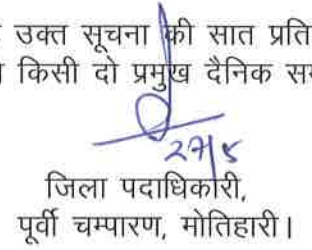 उक्त सूचना की सात प्रति
किसी दो प्रमुख दैनिक सम
27/5
जिला पदाधिकारी,
पूर्वी चम्पारण, मोतिहारी।